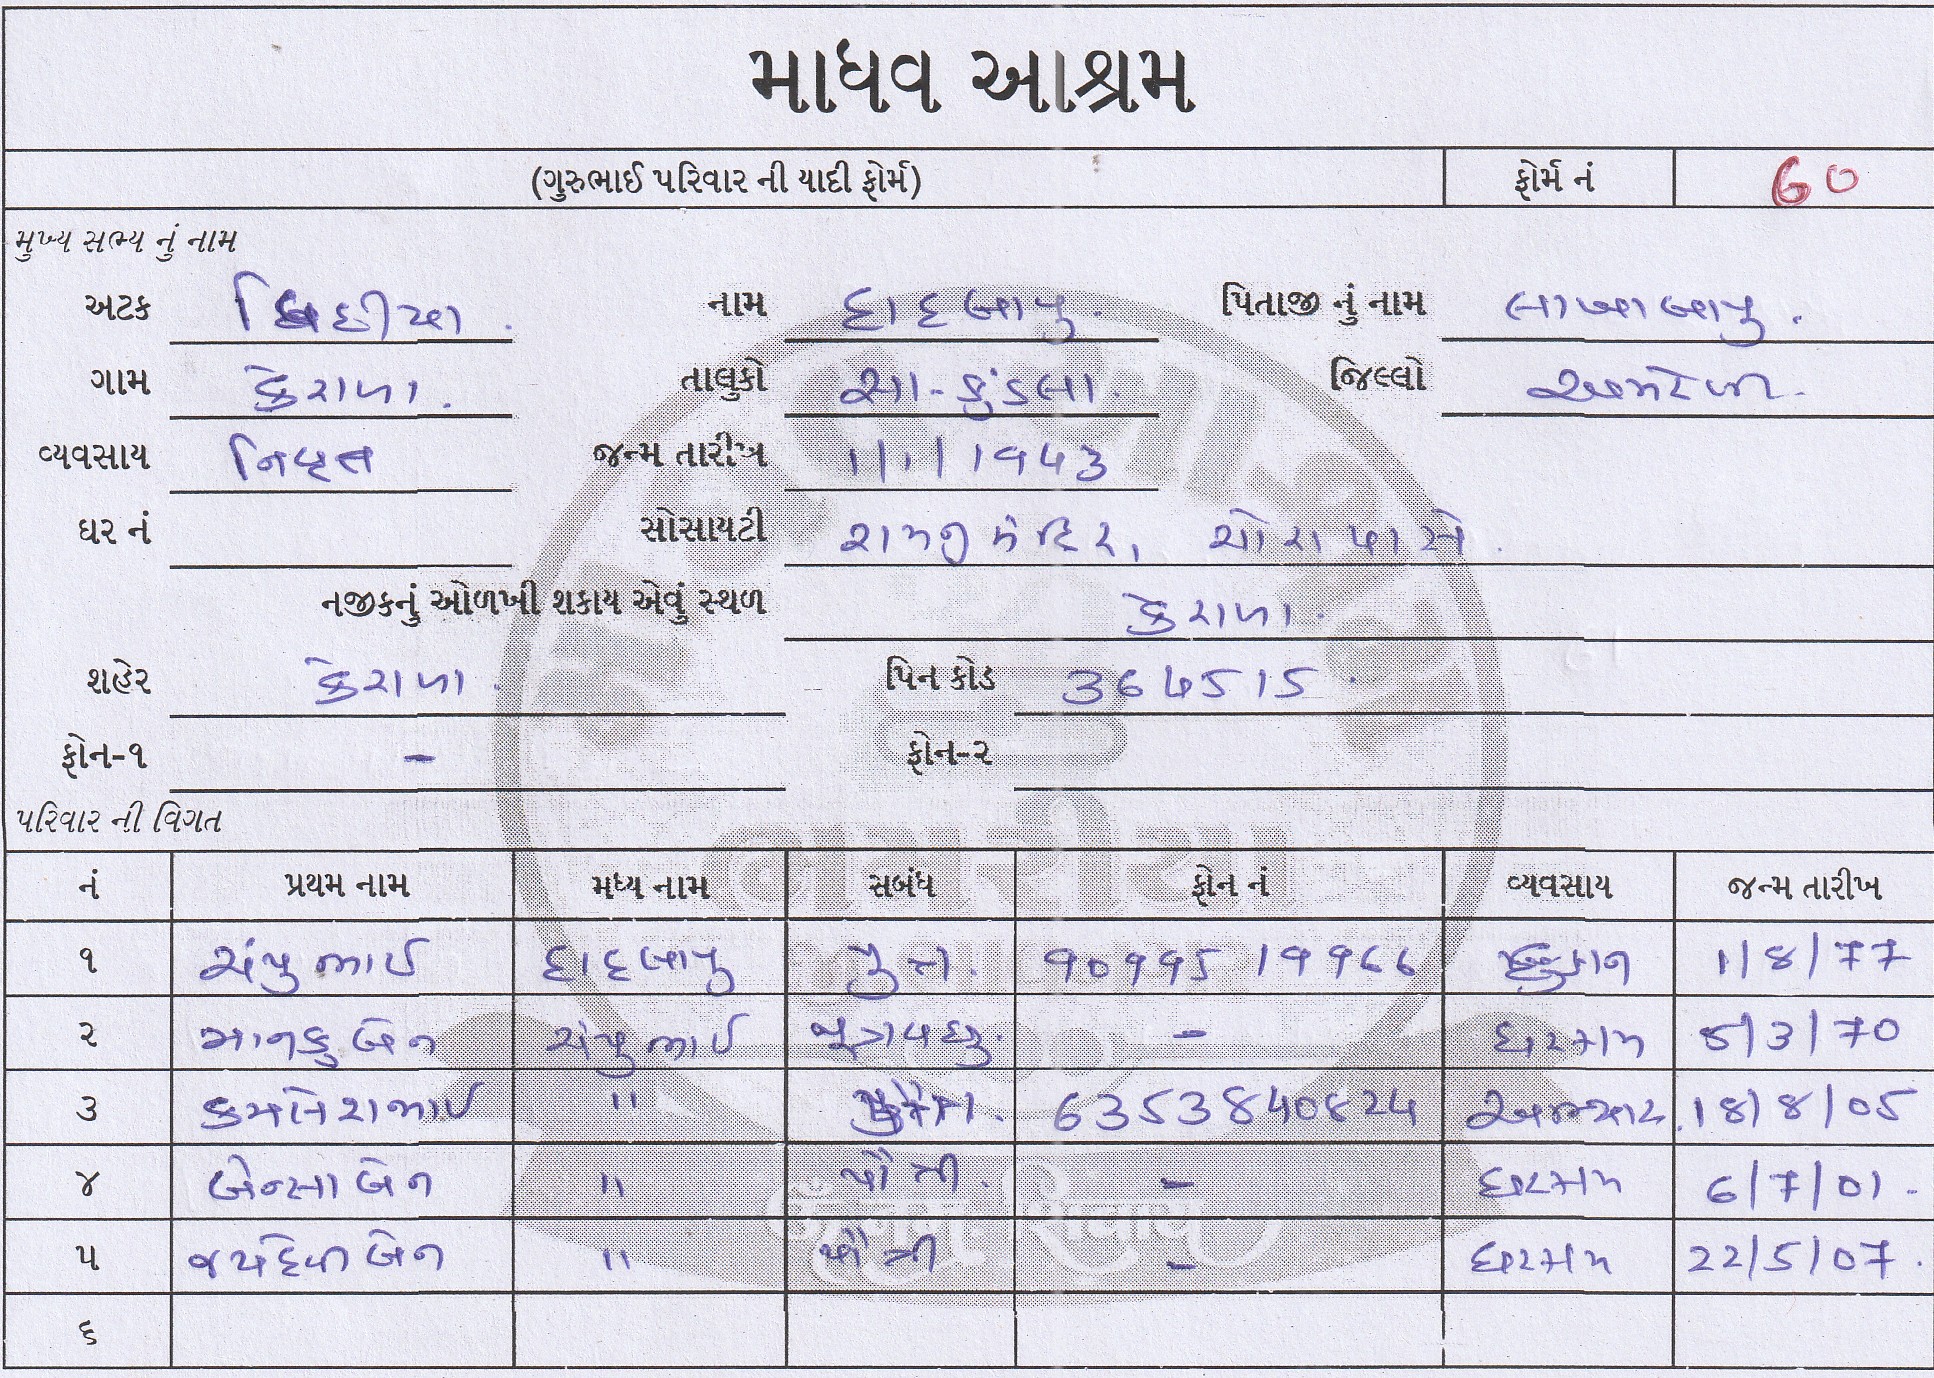 માધવ આશ્રમ
(ગુરુભાઈ પરિવાર ની યાદી ફોર્મ) ફોર્મ નં 60
મુખ્ય સભ્ય નું નામ
અટક નામ દાદબાપુ. પિતાજી નું નામ લાખાબાપુ.
ગામ કેરાળા. તાલુકો સા-કુંડલા. જિલ્લો અમરેલી.
વ્યવસાય નિવૃત જન્મ તારીખ 1/1/1943
ઘર નં સોસાયટી રામજી મંદિર, ચોરા પાસે.
નજીકનું ઓળખી શકાય એવું સ્થળ કેરાળા.
શહેર કેરાળા. પિન કોડ 364515.
ફોન-૧ - ફોન-૨
પરિવાર ની વિગત
નં પ્રથમ નામ મધ્ય નામ સબંધ ફોન નં વ્યવસાય જન્મ તારીખ
૧ ચંપુભાઈ દાદબાપુ પુત્ર. 1/8/77
૨ માનકુબેન ચંપુભાઈ પુત્રવધુ. - ઘરકામ 5/3/70
૩ કમલેશભાઈ " પૌત્ર. 6353840824 અભ્યાસ. 18/8/05
૪ બેન્સાબેન " પૌત્રી. - ઘરકામ 6/7/01.
૫ જયદેવીબેન " પૌત્રી - ઘરકામ 22/5/07.
૬